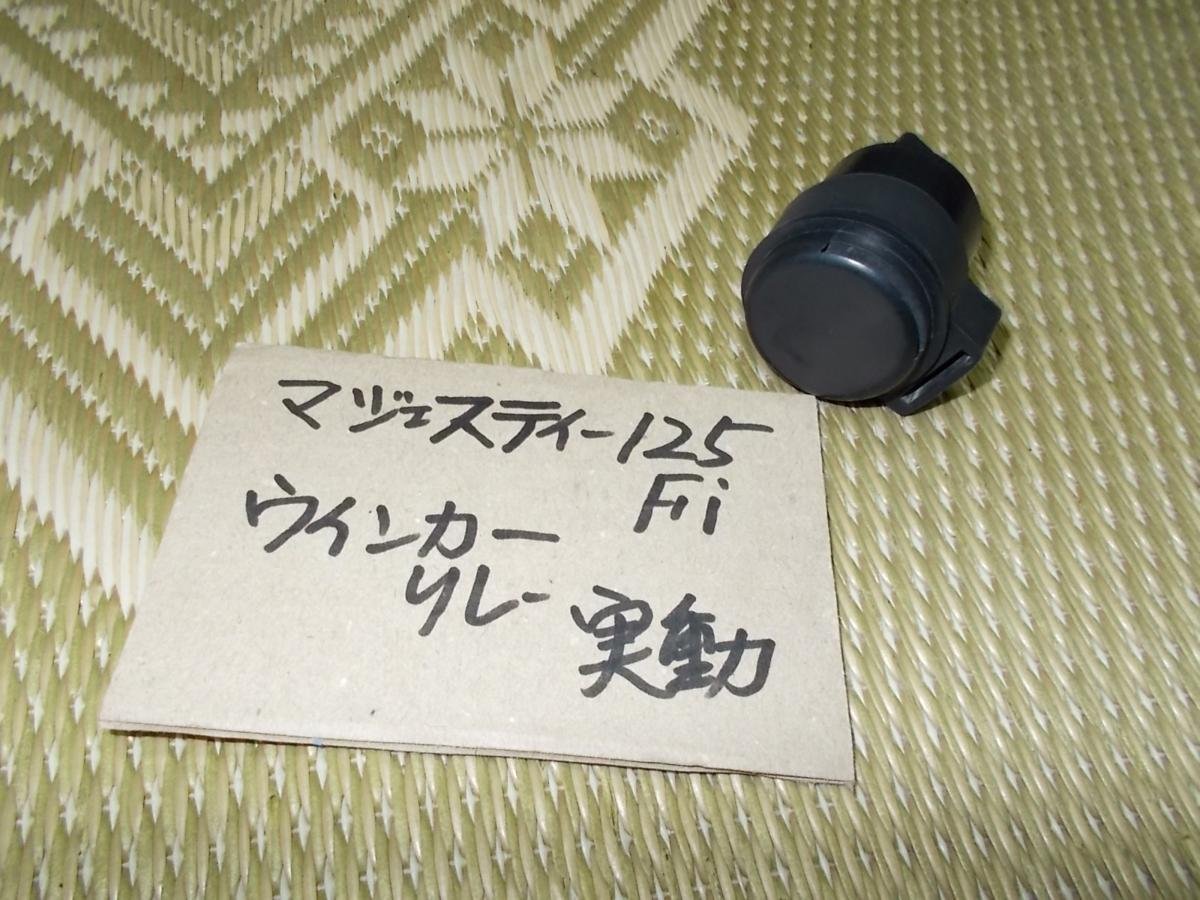 マジェスティー125
Fi
ウインカー
リレー
実動